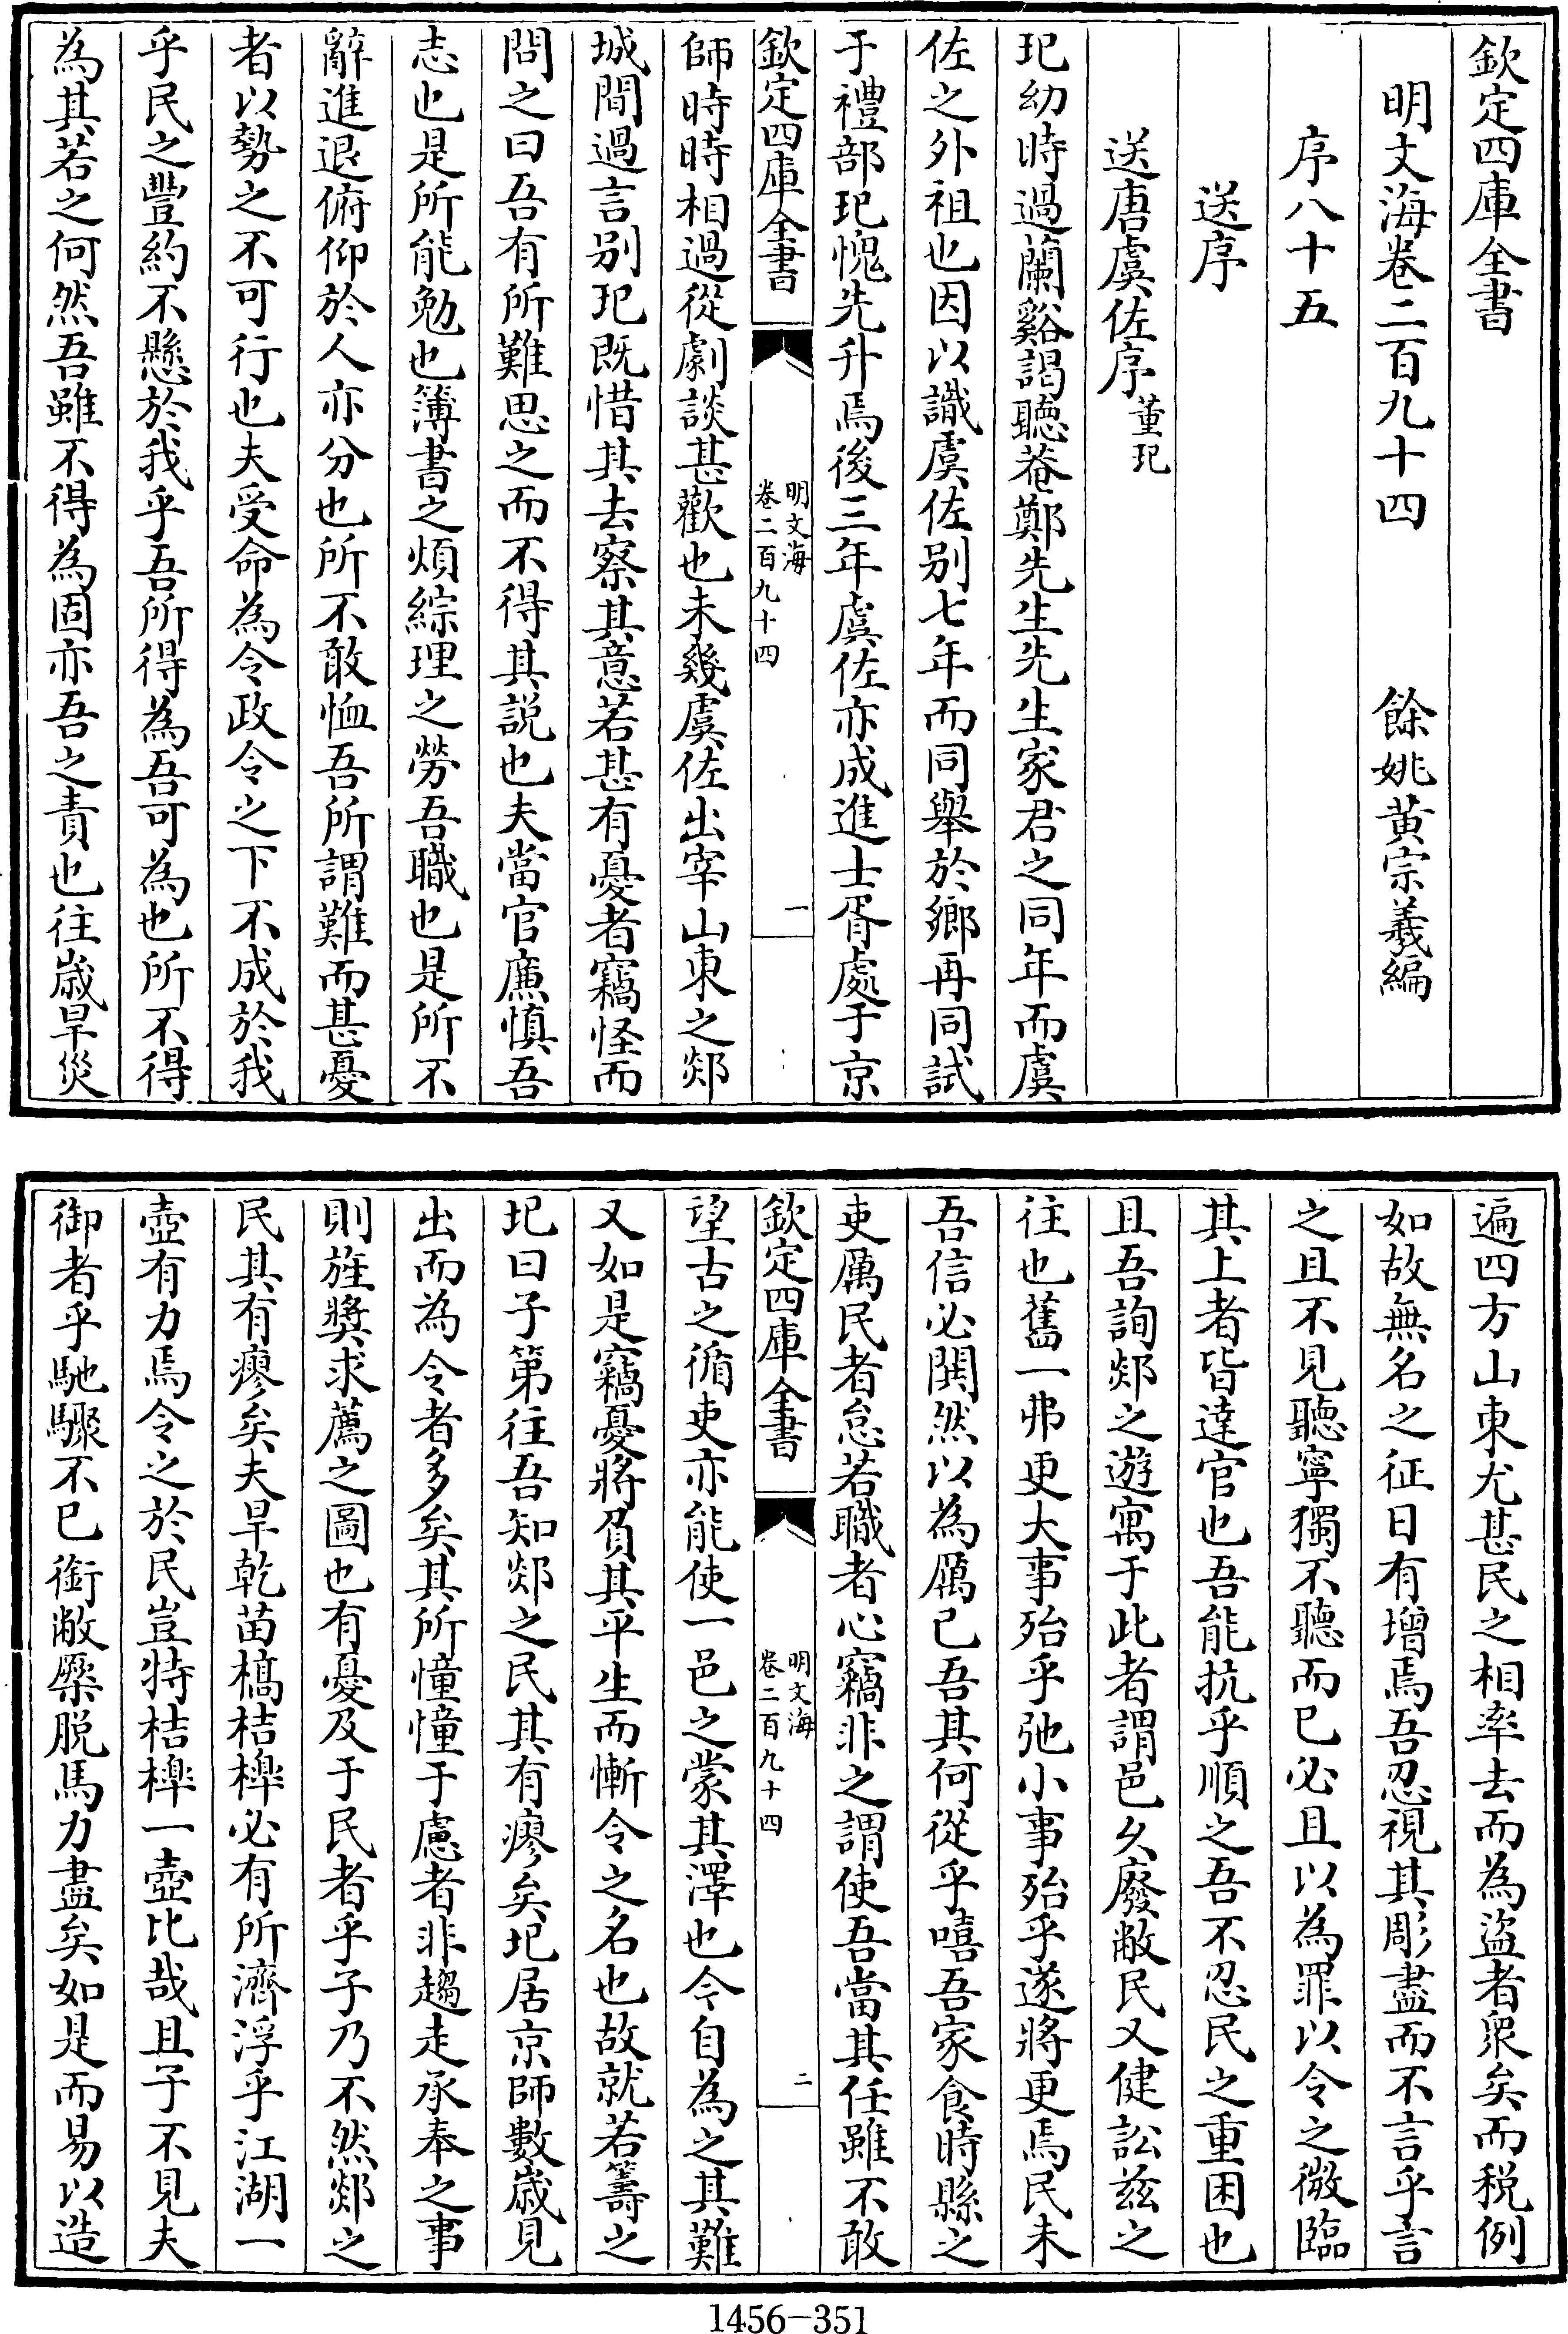 欽定四庫全書
明文海卷二百九十四　餘姚黄宗羲編
序八十五
送序
送唐虞佐序董玘
玘幼時過蘭谿謁聽菴鄭先生先生家君之同年而虞
佐之外祖也因以識虞佐别七年而同舉於鄉再同試
于禮部玘愧先升焉後三年虞佐亦成進士胥處于京
欽定四庫全書
明文海
卷二百九十四
一
師時時相過從劇談甚歡也未幾虞佐出宰山東之郯
城間過言别玘既惜其去察其意若甚有憂者竊怪而
問之曰吾有所難思之而不得其説也夫當官廉慎吾
志也是所能勉也簿書之煩綜理之勞吾職也是所不
辭進退俯仰於人亦分也所不敢恤吾所謂難而甚憂
者以勢之不可行也夫受命為令政令之下不成於我
乎民之豐約不懸於我乎吾所得為吾可為也所不得
為其若之何然吾雖不得為固亦吾之責也往歲旱災
遍四方山東尤甚民之相率去而為盜者衆矣而税例
如故無名之征日有增焉吾忍視其彫盡而不言乎言
之且不見聽寧獨不聽而已必且以為罪以令之微臨
其上者皆達官也吾能抗乎順之吾不忍民之重困也
且吾詢郯之遊寓于此者謂邑久廢敝民又健訟兹之
往也舊一弗更大事殆乎弛小事殆乎遂將更焉民未
吾信必鬨然以為厲已吾其何從乎嘻吾家食時縣之
吏厲民者怠若職者心竊非之謂使吾當其任雖不敢
欽定四庫全書
明文海
卷二百九十四
二
望古之循吏亦能使一邑之蒙其澤也今自為之其難
又如是竊憂將負其平生而慚令之名也故就若籌之
玘曰子第往吾知郯之民其有瘳矣玘居京師數歲見
出而為令者多矣其所憧憧于慮者非趨走承奉之事
則旌奬求薦之圖也有憂及于民者乎子乃不然郯之
民其有瘳矣夫旱乾苗槁桔槹必有所濟浮乎江湖一
壺有力焉令之於民豈特桔槹一壺比哉且子不見夫
御者乎馳驟不已銜敝橜脱馬力盡矣如是而易以造
1456-351